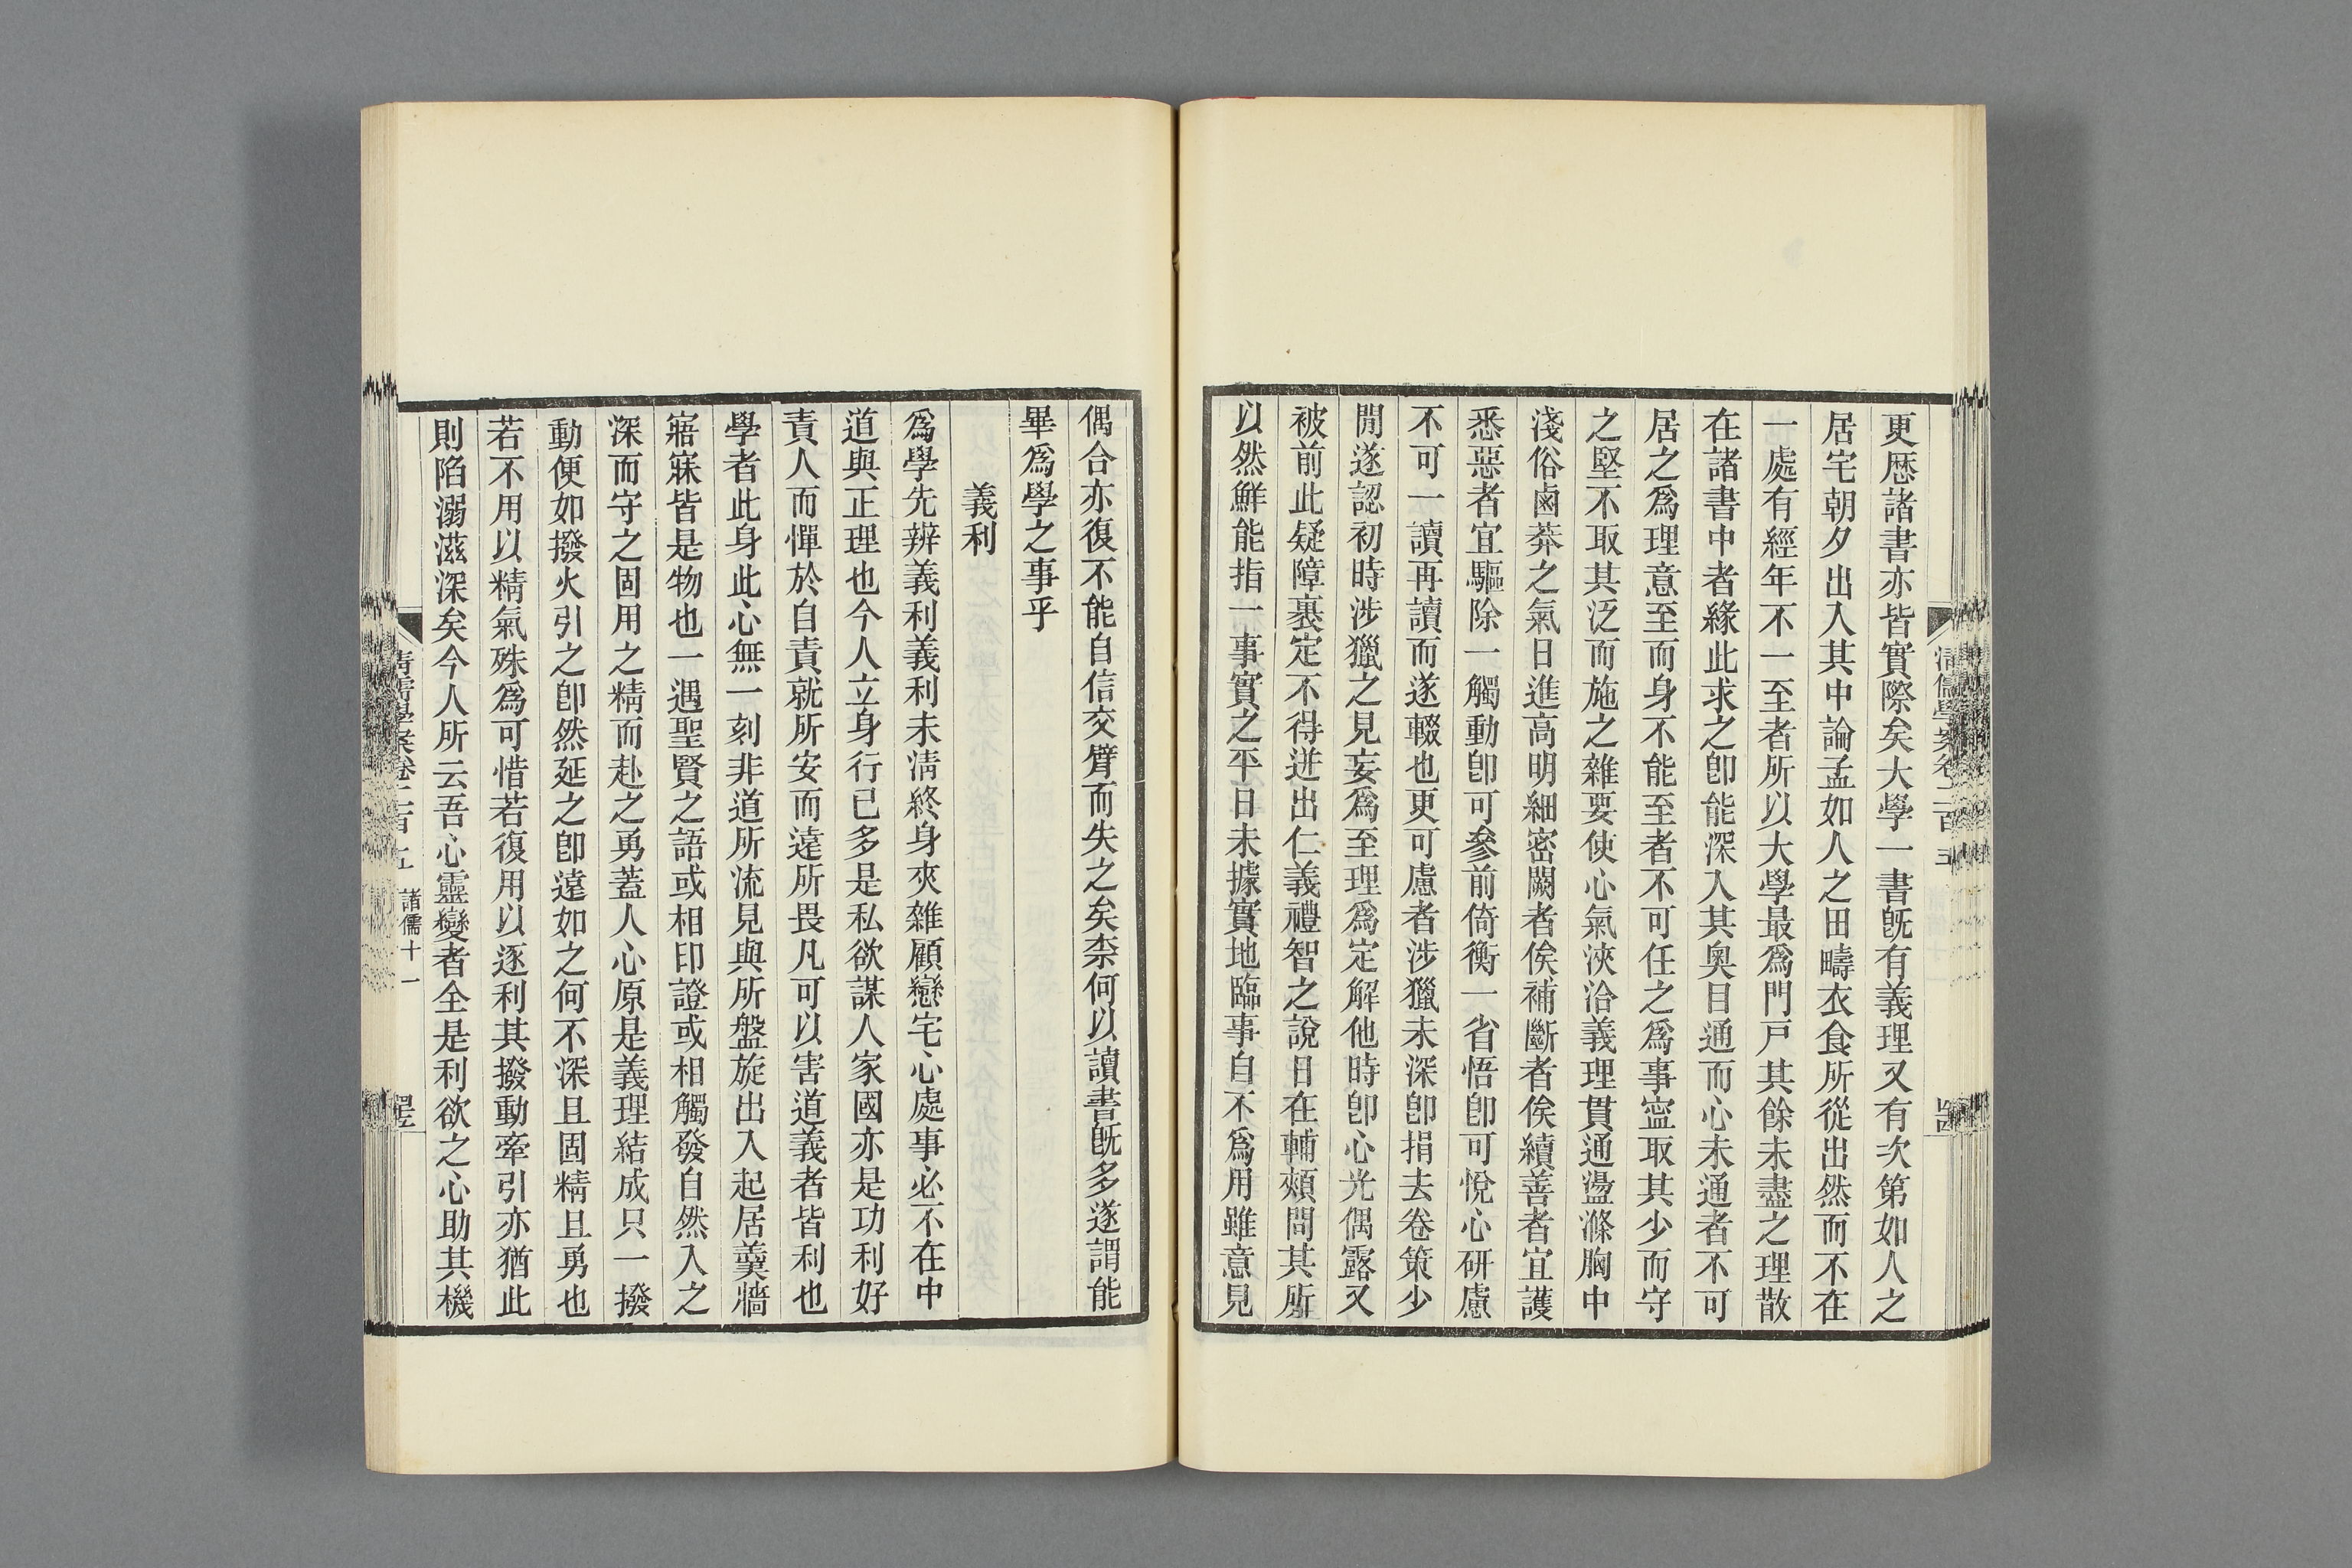 更歷諸書亦皆實際矣大學一書旣有義理又有次第如人之
居宅朝夕出入其中論孟如人之田疇衣食所從出然而不在
一處有經年不一至者所以大學最爲門戸其餘未盡之理散
在諸書中者緣此求之卽能深入其奥目通而心未通者不可
居之爲理意至而身不能至者不可任之爲事寍取其少而守
之堅不取其泛而施之雜要使心氣浹洽義理貫通盪滌胸中
淺俗鹵莽之氣日進高明細密闕者俟補斷者俟續善者宜護
悉惡者宜驅除一觸動卽可參前倚衡一省悟卽可悅心研慮
不可一讀再讀而遂輟也更可慮者涉獵未深卽捐去卷策少
閒遂認初時涉獵之見妄爲至理爲定解他時卽心光偶露又
被前此疑障裹定不得迸出仁義禮智之說日在輔頰問其所
以然鮮能指一事實之平日未據實地臨事自不爲用雖意見
偶合亦復不能自信交臂而失之矣柰何以讀書旣多遂謂能
畢爲學之事乎
義利
爲學先辨義利義利未淸終身夾雜顧戀宅心處事必不在中
道與正理也今人立身行已多是私欲謀人家國亦是功利好
責人而憚於自責就所安而遠所畏凡可以害道義者皆利也
學者此身此心無一刻非道所流見與所盤旋出入起居羹牆
寤寐皆是物也一遇聖賢之語或相印證或相觸發自然入之
深而守之固用之精而赴之勇蓋人心原是義理結成只一撥
動便如撥火引之卽然延之卽遠如之何不深且固精且勇也
若不用以精氣殊爲可惜若復用以逐利其撥動牽引亦猶此
則陷溺滋深矣今人所云吾心靈變者全是利欲之心助其機
淸儒學案卷二百五
諸儒十一